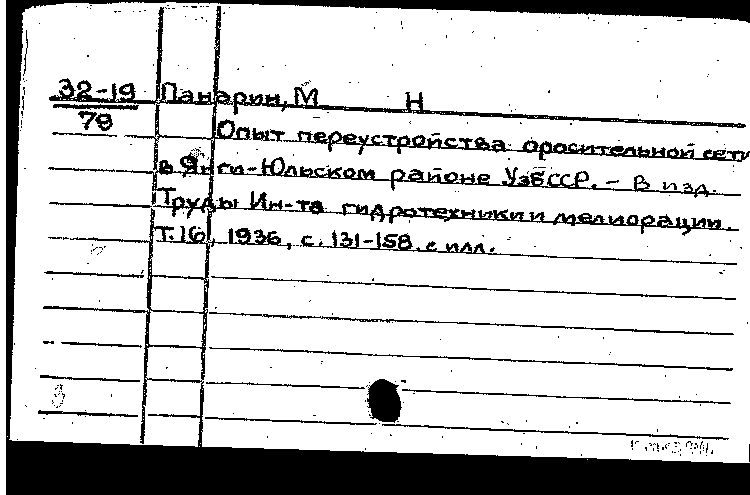 32-19 Панарин, М Н
78
Опыт переустройства оросительной сети
в Янги-Юльском районе УзбССР. - В изд.
Труды Ин-та гидротехники и мелиорации.
Т. 16, 1936, с. 131-158. с илл.